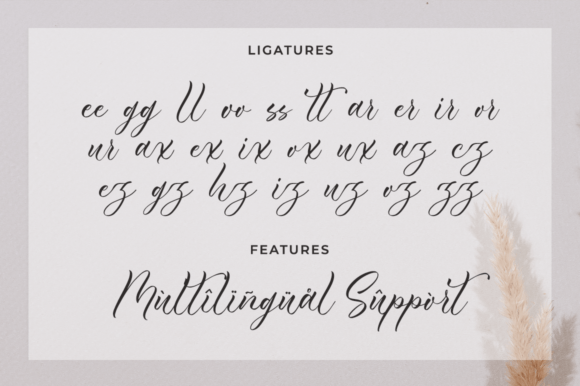 LIGATURES
ee gg ll oo ss tt ar er ir or
ur ax ex ix ox ux az cz
ez gz hz iz uz oz zz
FEATURES
Mùltîlïñgüål Sûppòrt